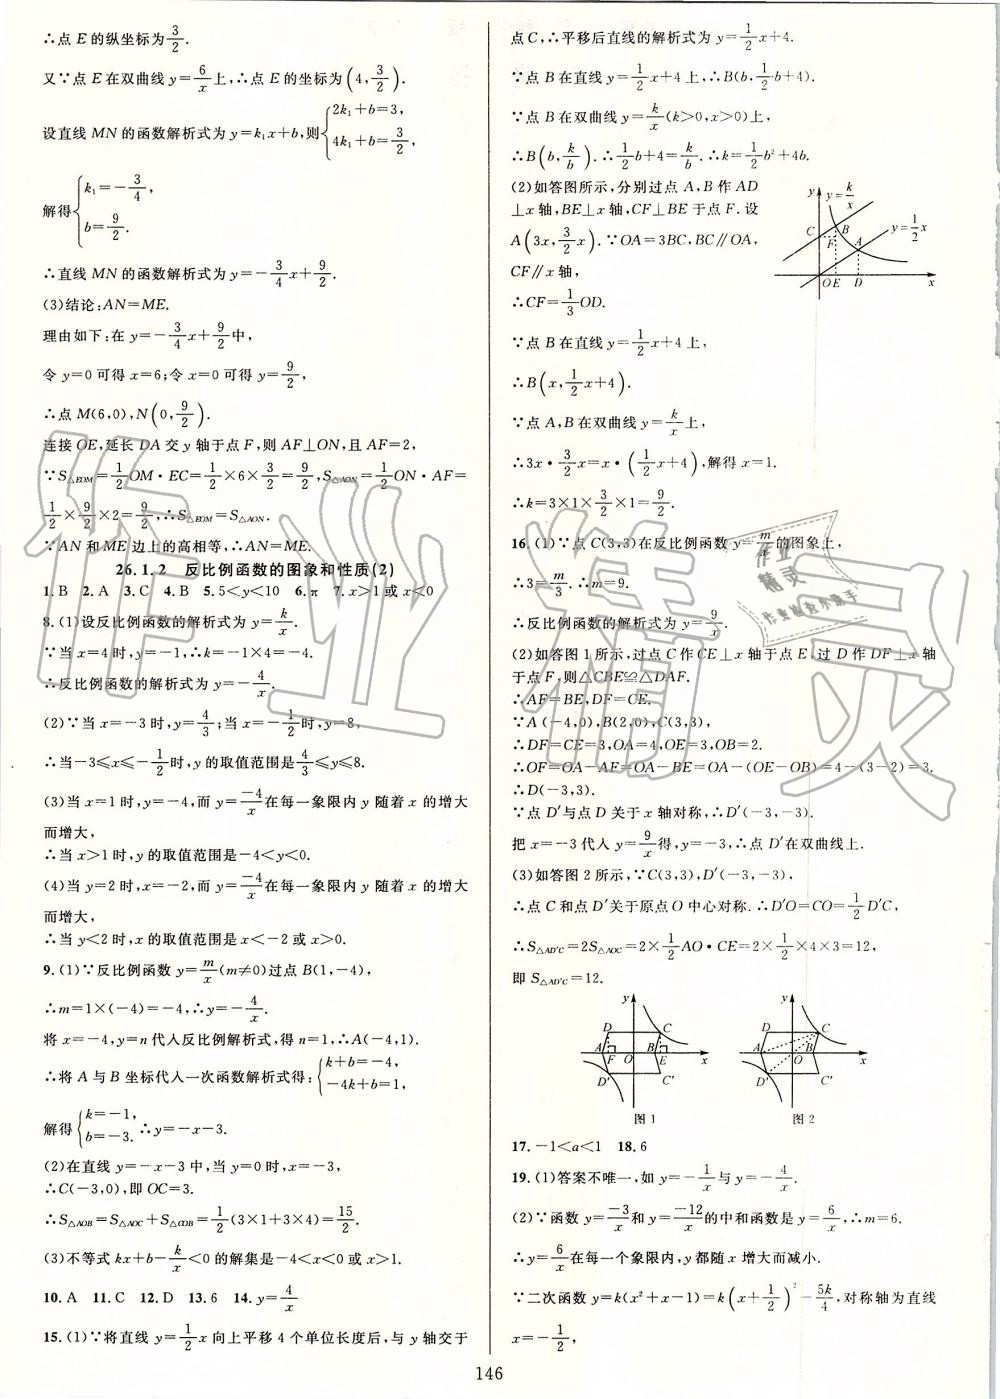 ∴点 E 的纵坐标为3/2.
又∵点 E 在双曲线 y=6/x上,∴点 E 的坐标为(4,3/2).
设直线 MN 的函数解析式为 y=k₁x+b,则{2k₁+b=3, 4k₁+b=3/2,
解得{k₁=-3/4, b=9/2.
∴直线 MN 的函数解析式为 y=-3/4x+9/2.
(3)结论:AN=ME.
理由如下:在 y=-3/4x+9/2中,
令 y=0 可得 x=6;令 x=0 可得 y=9/2,
∴点 M(6,0),N(0,9/2).
连接 OE,延长 DA 交 y 轴于点 F,则 AF⊥ON,且 AF=2,
∵S△EOM=1/2OM·EC=1/2×6×3/2=9/2,S△AON=1/2ON·AF=
1/2×9/2×2=9/2,∴S△EOM=S△AON.
∵AN 和 ME 边上的高相等,∴AN=ME.
26.1.2 反比例函数的图象和性质(2)
1.B 2.A 3.C 4.B 5.5<y<10 6.π 7.x>1 或 x<0
8.(1)设反比例函数的解析式为 y=k/x.
∵当 x=4 时,y=-1,∴k=-1×4=-4.
∴反比例函数的解析式为 y=-4/x.
(2)∵当 x=-3 时,y=4/3;当 x=-1/2时,y=8,
∴当-3≤x≤-1/2时,y 的取值范围是4/3≤y≤8.
(3)当 x=1 时,y=-4,而 y=-4/x在每一象限内 y 随着 x 的增大
而增大,
∴当 x>1 时,y 的取值范围是-4<y<0.
(4)当 y=2 时,x=-2,而 y=-4/x在每一象限内 y 随着 x 的增大
而增大,
∴当 y<2 时,x 的取值范围是 x<-2 或 x>0.
9.(1)∵反比例函数 y=m/x(m≠0)过点 B(1,-4),
∴m=1×(-4)=-4,∴y=-4/x.
将 x=-4,y=n 代入反比例解析式,得 n=1,∴A(-4,1).
∴将 A 与 B 坐标代入一次函数解析式得:{k+b=-4, -4k+b=1,
解得{k=-1, b=-3. ∴y=-x-3.
(2)在直线 y=-x-3 中,当 y=0 时,x=-3.
∴C(-3,0),即 OC=3.
∴S△AOB=S△AOC+S△COB=1/2(3×1+3×4)=15/2.
(3)不等式 kx+b-k/x<0 的解集是-4<x<0 或 x>1.
10.A 11.C 12.D 13.6 14.y=4/x
15.(1)∵将直线 y=1/2x 向上平移 4 个单位长度后,与 y 轴交于
点 C,∴平移后直线的解析式为 y=1/2x+4.
∵点 B 在直线 y=1/2x+4 上,∴B(b,1/2b+4).
∵点 B 在双曲线 y=k/x(k>0,x>0)上,
∴B(b,k/b).∴1/2b+4=k/b.∴k=1/2b²+4b.
(2)如答图所示,分别过点 A,B 作 AD
⊥x 轴,BE⊥x 轴,CF⊥BE 于点 F.设
A(3x,3/2x).∵OA=3BC,BC∥OA,
CF∥x 轴,
∴CF=1/3OD.
∵点 B 在直线 y=1/2x+4 上,
∴B(x,1/2x+4).
∵点 A,B 在双曲线 y=k/x上,
∴3x·3/2x=x·(1/2x+4),解得 x=1.
∴k=3×1×3/2×1=9/2.
y y=k/x
C B y=1/2x
F A
O E D x
16.(1)∵点 C(3,3)在反比例函数 y=m/x的图象上,
∴3=m/3.∴m=9.
∴反比例函数的解析式为 y=9/x.
(2)如答图 1 所示,过点 C 作 CE⊥x 轴于点 E,过 D 作 DF⊥x 轴
于点 F,则△CBE≌△DAF.
∴AF=BE,DF=CE.
∵A(-4,0),B(2,0),C(3,3),
∴DF=CE=3,OA=4,OE=3,OB=2.
∴OF=OA-AF=OA-BE=OA-(OE-OB)=4-(3-2)=3.
∴D(-3,3).
∵点 D′与点 D 关于 x 轴对称,∴D′(-3,-3).
把 x=-3 代入 y=9/x得,y=-3,∴点 D′在双曲线上.
(3)如答图 2 所示,∵C(3,3),D′(-3,-3),
∴点 C 和点 D′关于原点 O 中心对称.∴D′O=CO=1/2D′C,
∴S△AD′C=2S△AOC=2×1/2AO·CE=2×1/2×4×3=12,
即 S△AD′C=12.
y y
D C D C
A F O B E x A O B x
D′ C′ D′ C′
图 1 图 2
17.-1<a<1 18.6
19.(1)答案不唯一,如 y=-1/x与 y=-4/x.
(2)∵函数 y=-3/x和 y=-12/x的中和函数是 y=6/x,∴m=6.
∴y=6/x在每一个象限内,y 都随 x 增大而减小.
∵二次函数 y=k(x²+x-1)=k(x+1/2)²-5k/4,对称轴为直线
x=-1/2,
146
作业精灵
作业
精灵